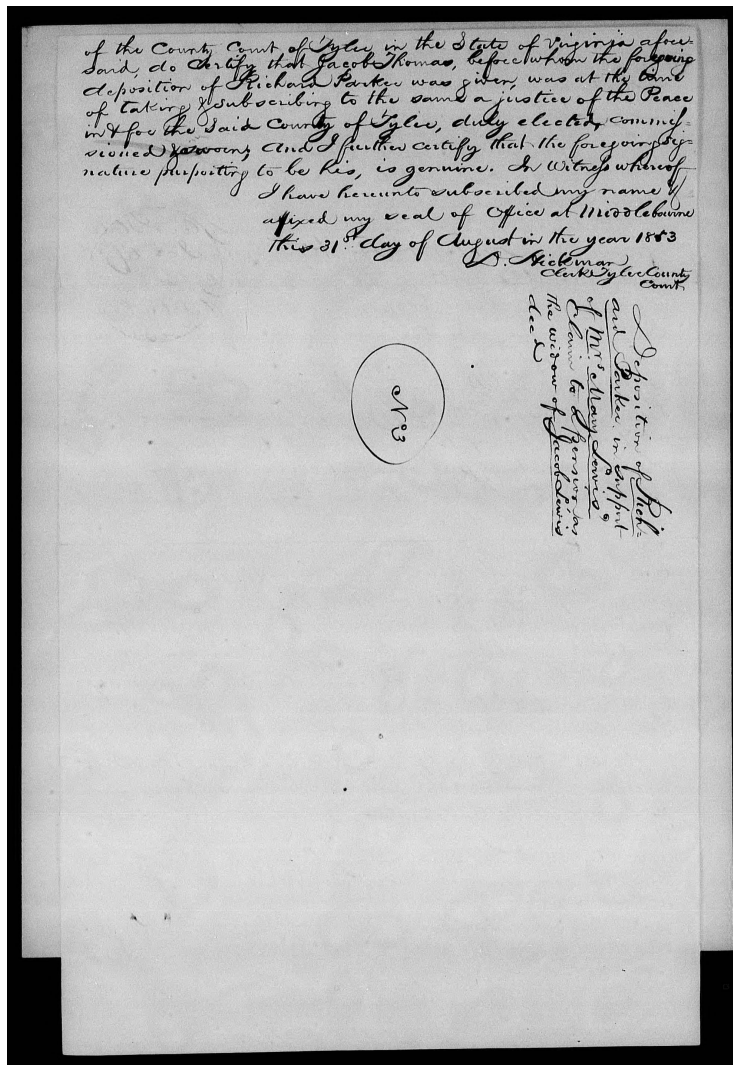 of the County Court of Tyler in the State of Virginia afore-
said, do certify that Jacob Thomas, before whom the foregoing
deposition of Richard Parker was given, was at the time
of taking & subscribing to the same a justice of the Peace
in & for the said County of Tyler, duly elected, commis-
sioned & sworn, and I further certify that the foregoing sig-
nature purporting to be his, is genuine. In Witness whereof
I have hereunto subscribed my name &
affixed my seal of Office at Middlebourne
this 31st day of August in the year 1853
D. Hickman
Clerk Tyler County
Court
Deposition of Rich-
ard Parker in support
of Mrs Mary Lewis'
Claim to a Pension, as
the widow of Jacob Lewis
decd
No 3